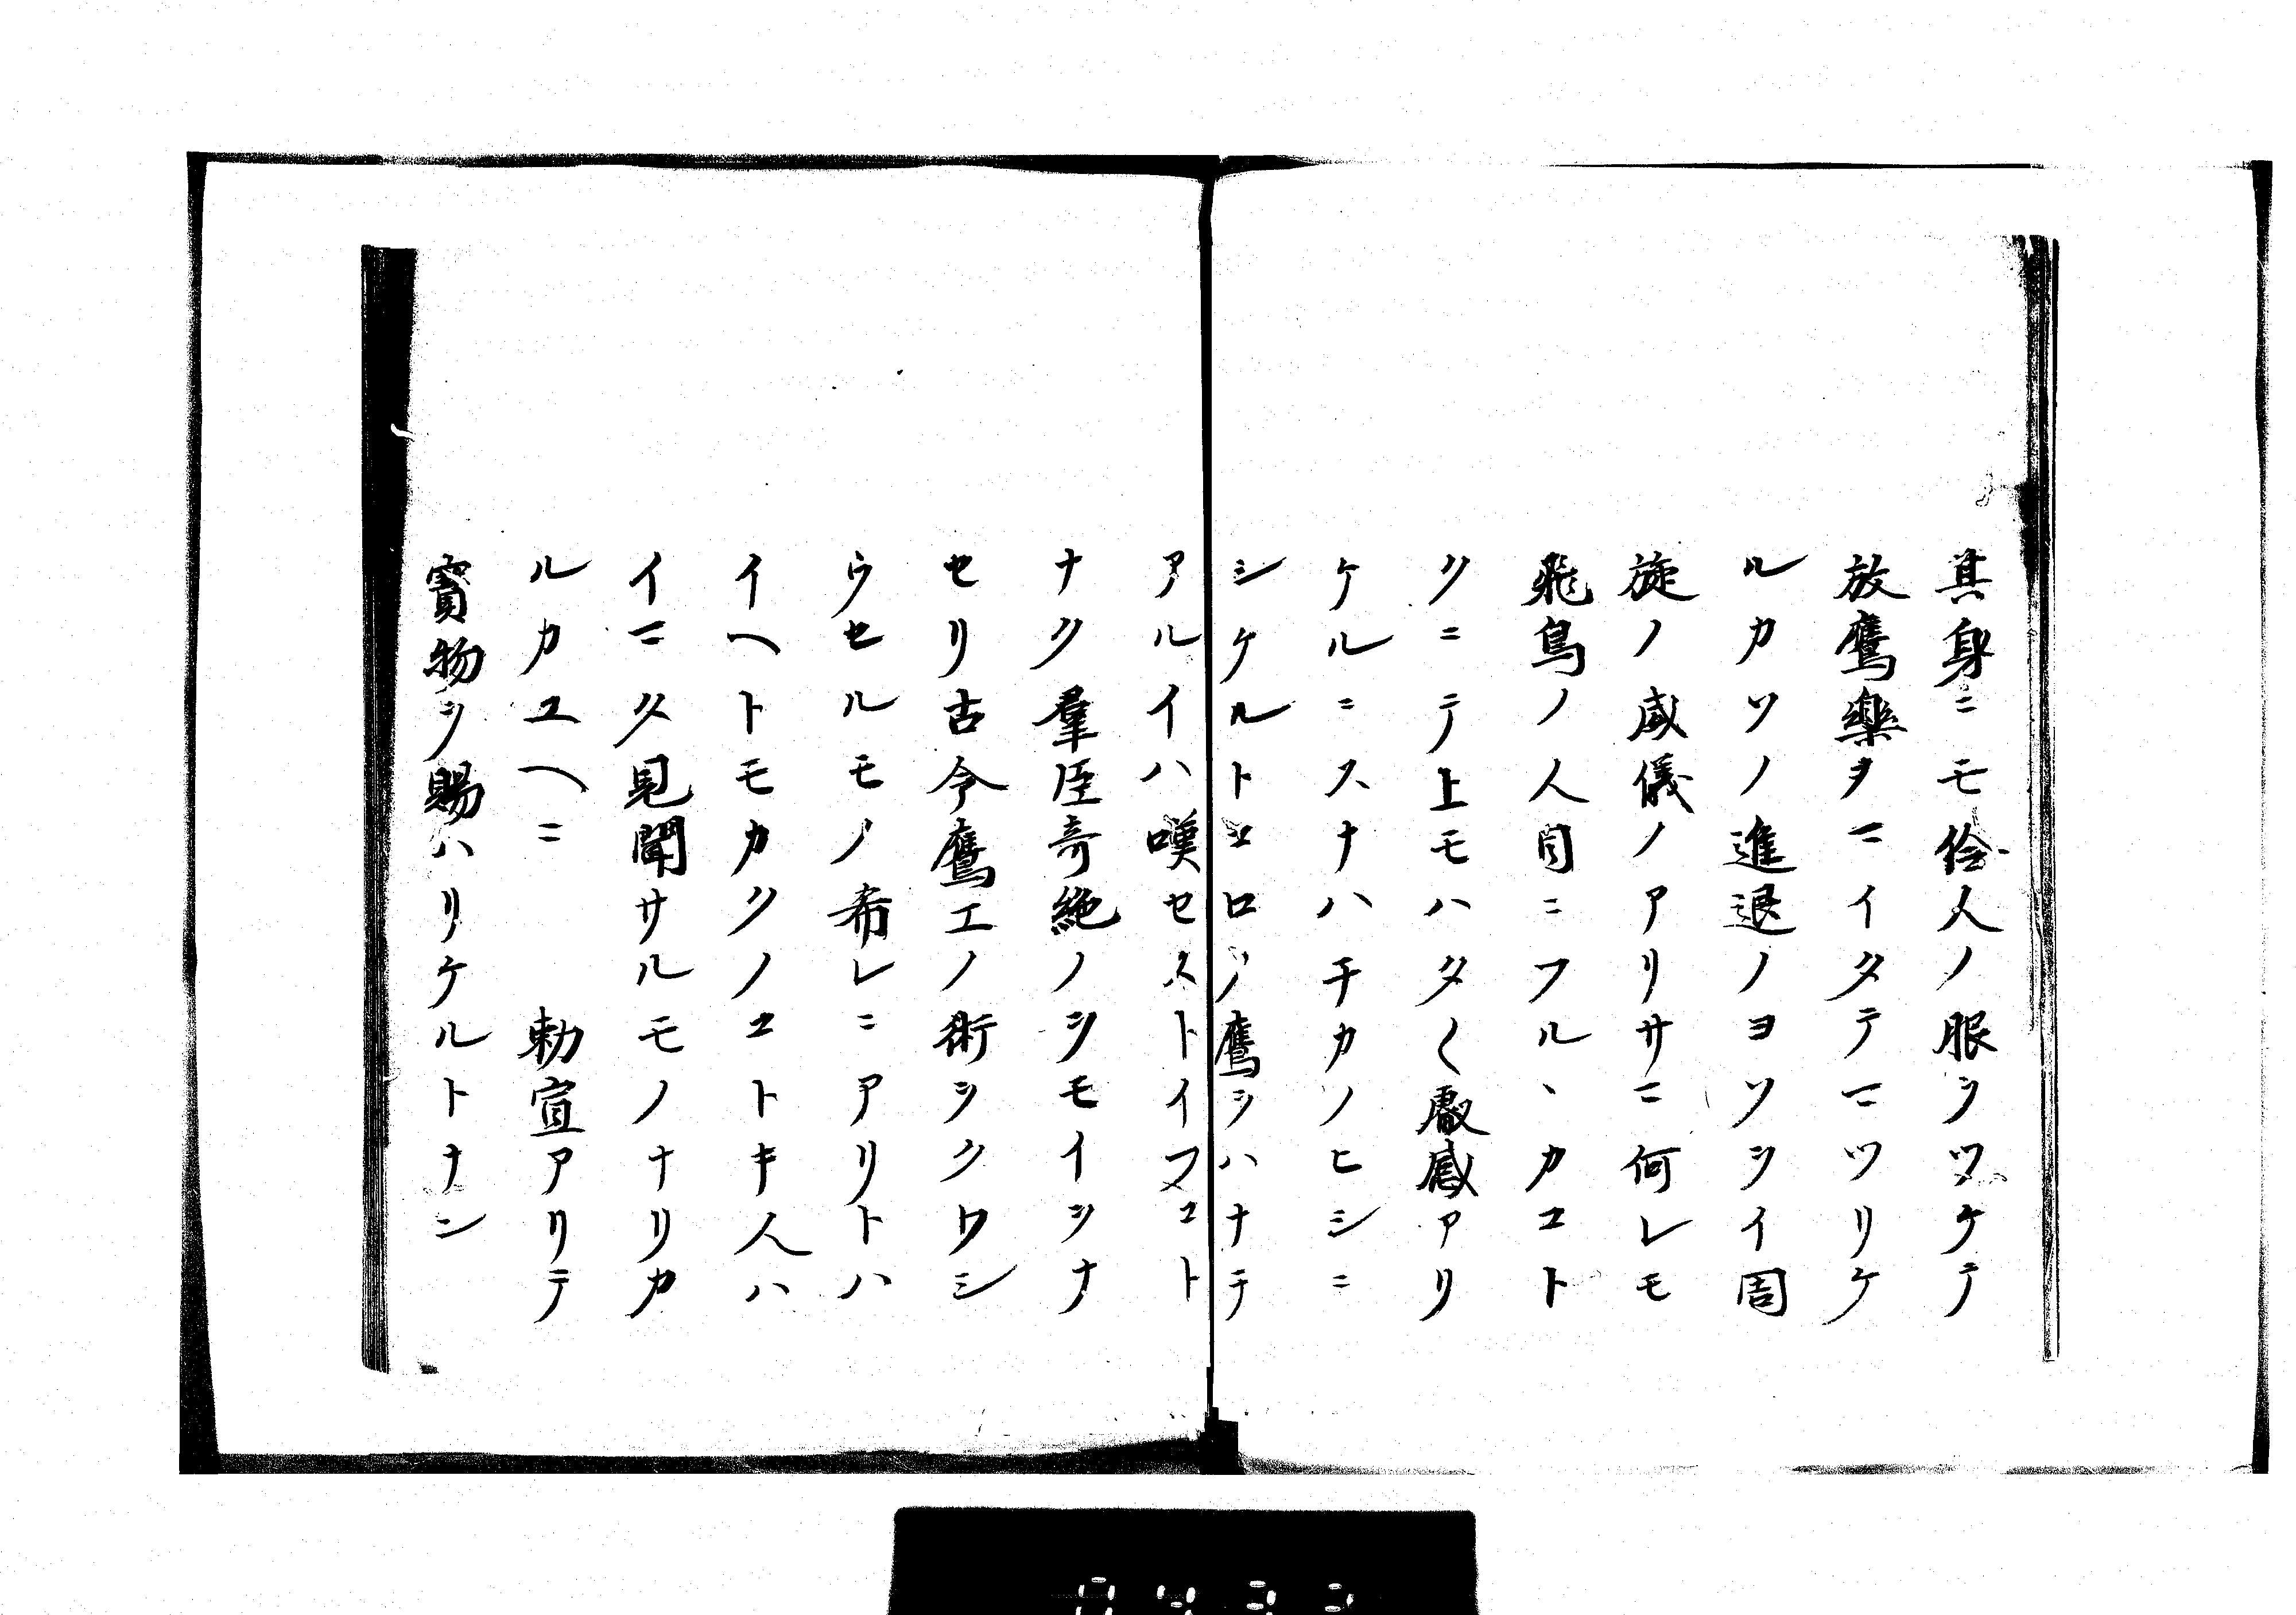 其身ニモ伶人ノ服ヲツケテ
放鷹樂ヲマイタテマツリケ
ルカソノ進退ノヨソヲイ周
旋ノ威儀ノアリサマ何レモ
飛鳥ノ人目ニフルヽカコト
クニテ上モハタ〱叡感アリ
ケルニスナハチカノヒシニ
シケルトコロノ鷹ヲハナテ
アルイハ嘆セストイフコト
ナク羣臣奇絶ノヲモイヲナ
セリ古今鷹工ノ術ヲクワシ
ウセルモノ希レニアリトハ
イヘトモカクノコトキ人ハ
イマタ見聞サルモノナリカ
ルカユヘニ　勅宣アリテ
寳物ヲ賜ハリケルトナン